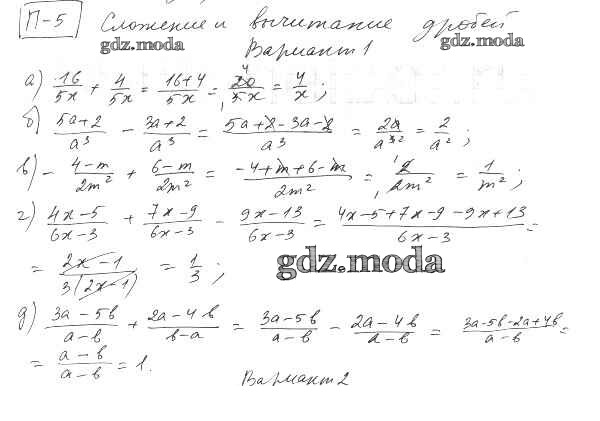 П-5 Сложение и вычитание дробей
gdz.moda gdz.moda
Вариант 1
а) 16/5x + 4/5x = (16+4)/5x = 20/5x = 4/x ;
б) (5a+2)/a³ − (3a+2)/a³ = (5a+2−3a−2)/a³ = 2a/a³ = 2/a² ;
в) − (4−m)/2m² + (6−m)/2m² = (−4+m+6−m)/2m² = 2/2m² = 1/m² ;
г) (4x−5)/(6x−3) + (7x−9)/(6x−3) − (9x−13)/(6x−3) = (4x−5+7x−9−9x+13)/(6x−3) =
= (2x−1)/3(2x−1) = 1/3 ;
gdz.moda
д) (3a−5b)/(a−b) + (2a−4b)/(b−a) = (3a−5b)/(a−b) − (2a−4b)/(a−b) = (3a−5b−2a+4b)/(a−b) =
= (a−b)/(a−b) = 1.
Вариант 2